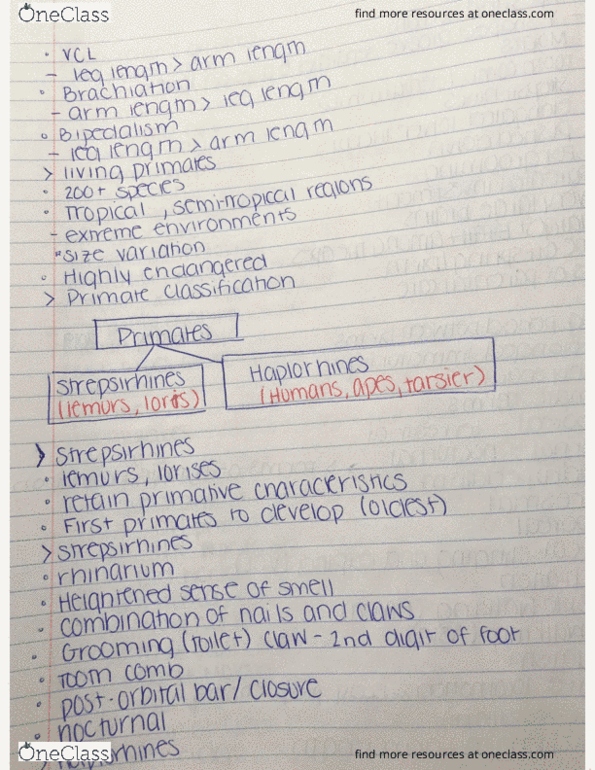 OneClass
find more resources at oneclass.com
• VCL
- leg length > arm length
• Brachiation
- arm length > leg length
• Bipedalism
- leg length > arm length
> living primates
• 200+ species
• Tropical, semi-tropical regions
- extreme environments
"size variation
• Highly endangered
> Primate classification
Primates
Strepsirhines
(lemurs, loris)
Haplorhines
(Humans, apes, tarsier)
> Strepsirhines
• lemurs, lorises
• retain primative characteristics
• First primates to develop (oldest)
> strepsirhines
• rhinarium
• Heightened sense of smell
• combination of nails and claws
• Grooming (toilet) claw - 2nd digit of foot
• tooth comb
• post-orbital bar/closure
• nocturnal
> haplorhines
OneClass
find more resources at oneclass.com